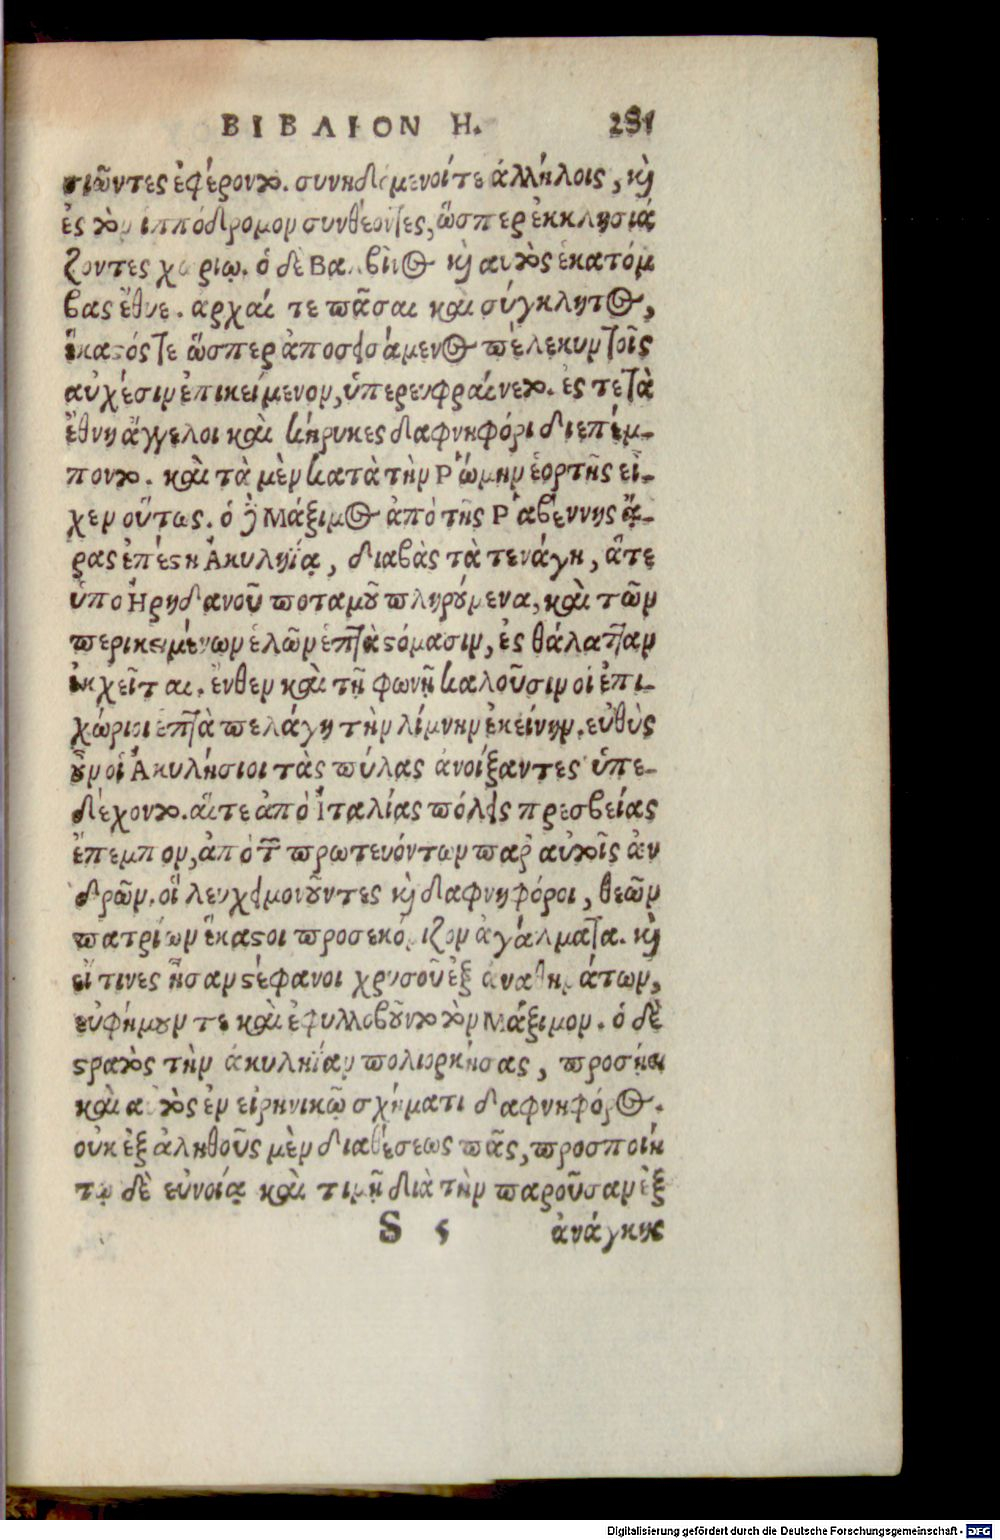 ΒΙΒΛΙΟΝ Η. 281
τιῶντες ἐφέροντο. συνηδόμενοί τε ἀλλήλοις, καὶ
ἐς τὸν ἱππόδρομον συνθέοντες, ὥσπερ ἐκκλησιά
ζοντες χωρίῳ. ὁ δὲ Βαλβῖνος καὶ αὐτὸς ἑκατόμ
βας ἔθυε. ἀρχαί τε πᾶσαι καὶ σύγκλητος,
ἕκαστός τε ὥσπερ ἀποσεισάμενος πέλεκυν τοῖς
αὐχέσιν ἐπικείμενον, ὑπερευφραίνετο. ἐς τε τὰ
ἔθνη ἄγγελοι καὶ κήρυκες δαφνηφόροι διεπέμ-
ποντο. καὶ τὰ μὲν κατὰ τὴν Ῥώμην ἑορτῆς εἶ-
χεν οὕτως. ὁ δὲ Μάξιμος ἀπὸ τῆς Ῥαβέννης ἄ-
ρας ἐπέστη Ἀκυληίᾳ, διαβὰς τὰ τενάγη, ἅτε
ὑπὸ Ἠρηδανοῦ ποταμοῦ πληρούμενα, καὶ τῶν
περικειμένων ἑλῶν ἑπτὰ στόμασιν, ἐς θάλατταν
ἐκχεῖται. ἔνθεν καὶ τῇ φωνῇ καλοῦσιν οἱ ἐπι-
χώριοι ἑπτὰ πελάγη τὴν λίμνην ἐκείνην. εὐθὺς
οὖν οἱ Ἀκυλήσιοι τὰς πύλας ἀνοίξαντες ὑπε-
δέχοντο. αἵ τε ἀπὸ Ἰταλίας πόλεις πρεσβείας
ἔπεμπον, ἀπὸ τῶν πρωτευόντων παρ' αὐτοῖς ἀν
δρῶν. οἳ λευχειμονοῦντες καὶ δαφνηφόροι, θεῶν
πατρίων ἕκαστοι προσεκόμιζον ἀγάλματα. καὶ
εἴ τινες ἦσαν στέφανοι χρυσοῦ ἐξ ἀναθημάτων,
εὐφήμουν τε καὶ ἐφυλλοβούν τὸν Μάξιμον. ὁ δὲ
στρατὸς τὴν ἀκυληίαν πολιορκήσας, προσῄει
καὶ αὐτὸς ἐν εἰρηνικῷ σχήματι δαφνηφόρος.
οὐκ ἐξ ἀληθοῦς μὲν διαθέσεως πᾶς, προσποιή
τῳ δὲ εὐνοίᾳ καὶ τιμῇ διὰ τὴν παροῦσαν ἐξ
S 5 ἀνάγκης
Digitalisierung gefördert durch die Deutsche Forschungsgemeinschaft - DFG